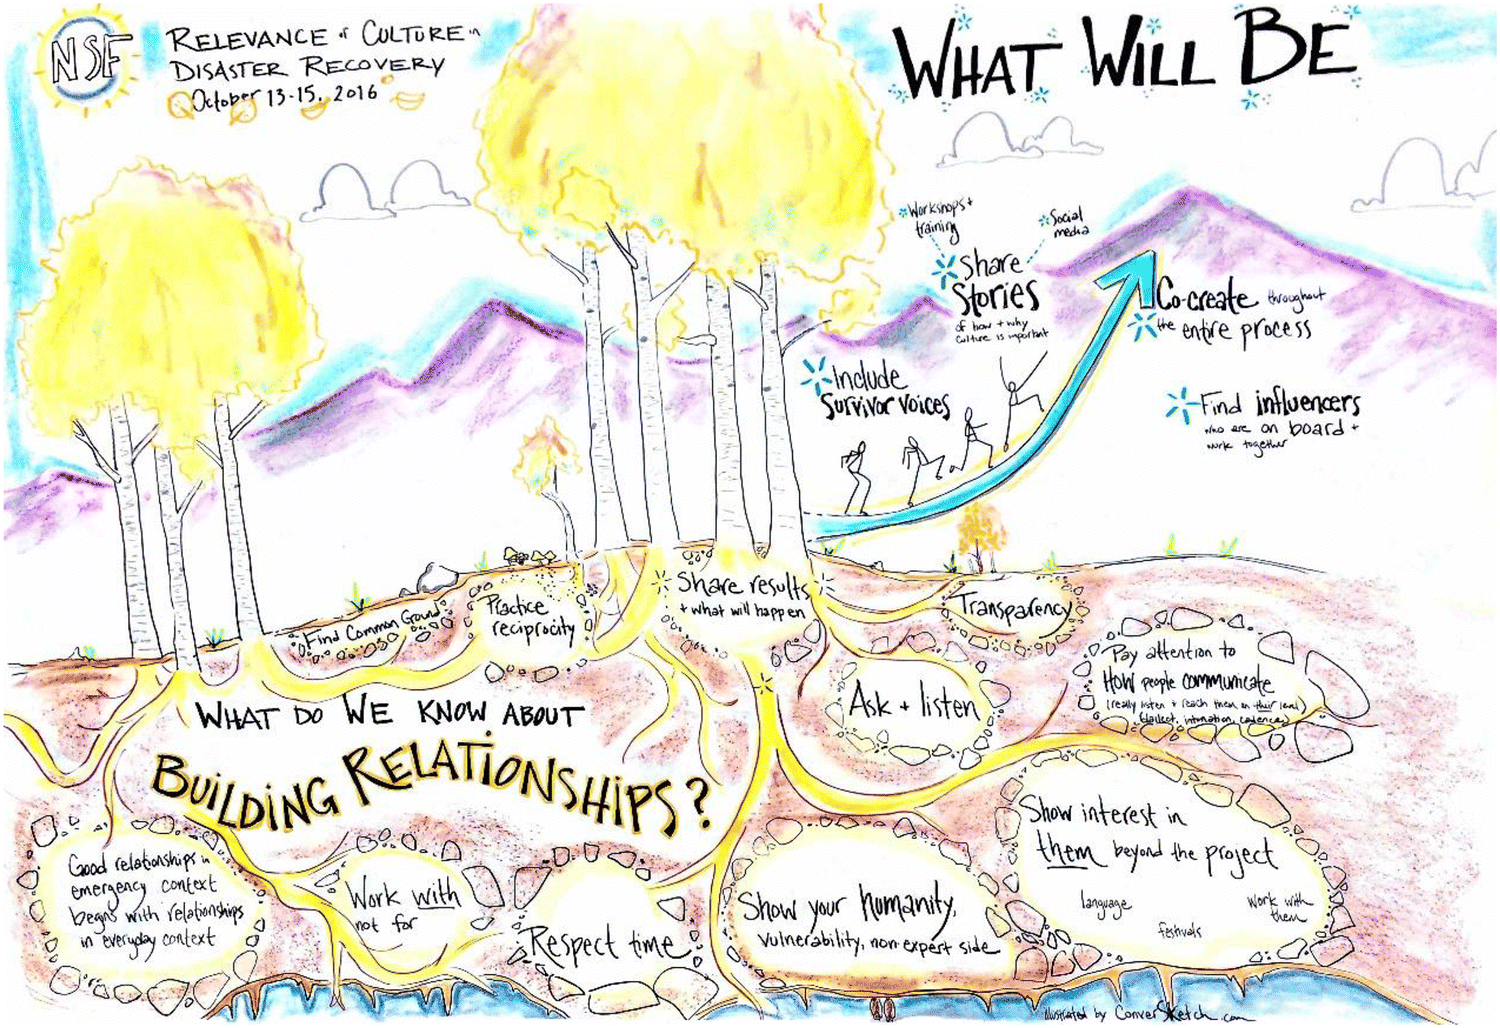 NSF
RELEVANCE of CULTURE in
DISASTER RECOVERY
October 13-15, 2016
WHAT WILL BE
Workshops +
training
Social
media
Share
Stories
of how + why
culture is important
Co-create throughout
the entire process
Include
Survivor voices
Find influencers
who are on board +
work together
Find Common Ground
Practice
reciprocity
Share results
+ what will happen
Transparency
Ask + listen
Pay attention to
How people communicate
(really listen + reach them on their level)
(dialect, intonation, cadence)
WHAT DO WE KNOW ABOUT
BUILDING RELATIONSHIPS?
Good relationships in
emergency context
begins with relationships
in everyday context
Work with
not for
Respect time
Show your humanity,
vulnerability, non-expert side
Show interest in
them beyond the project
language
festivals
work with
them
illustrated by ConverSketch.com